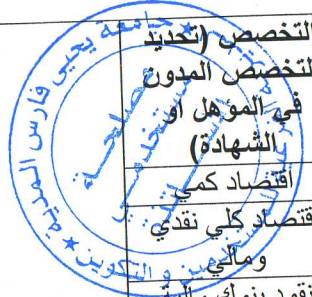 التخصص (تحديد
التخصص المدون
في المؤهل او
الشهادة)
اقتصاد كمي
اقتصاد كلي نقدي
ومالي
نقود بنوك مالية
جامعة يحيى فارس المدية
مصلحة
مستخدمي
والتكوين